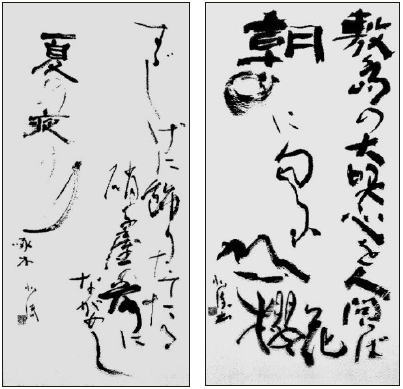 敷島の大和心を人問はば
朝日に匂ふ
山桜花
すゞしげに飾りたてたる
硝子屋の前に
ながめし
夏の夜の月
啄木